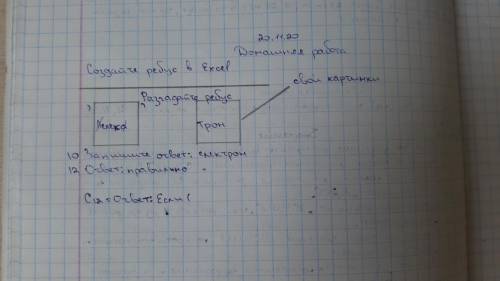 20.11.20
Домашняя работа
Создайте ребус в Excel
свои картинки
Разгадайте ребус
трон
10 Запишите ответ: електрон
12 Ответ: правильно
= Ответ; Если (